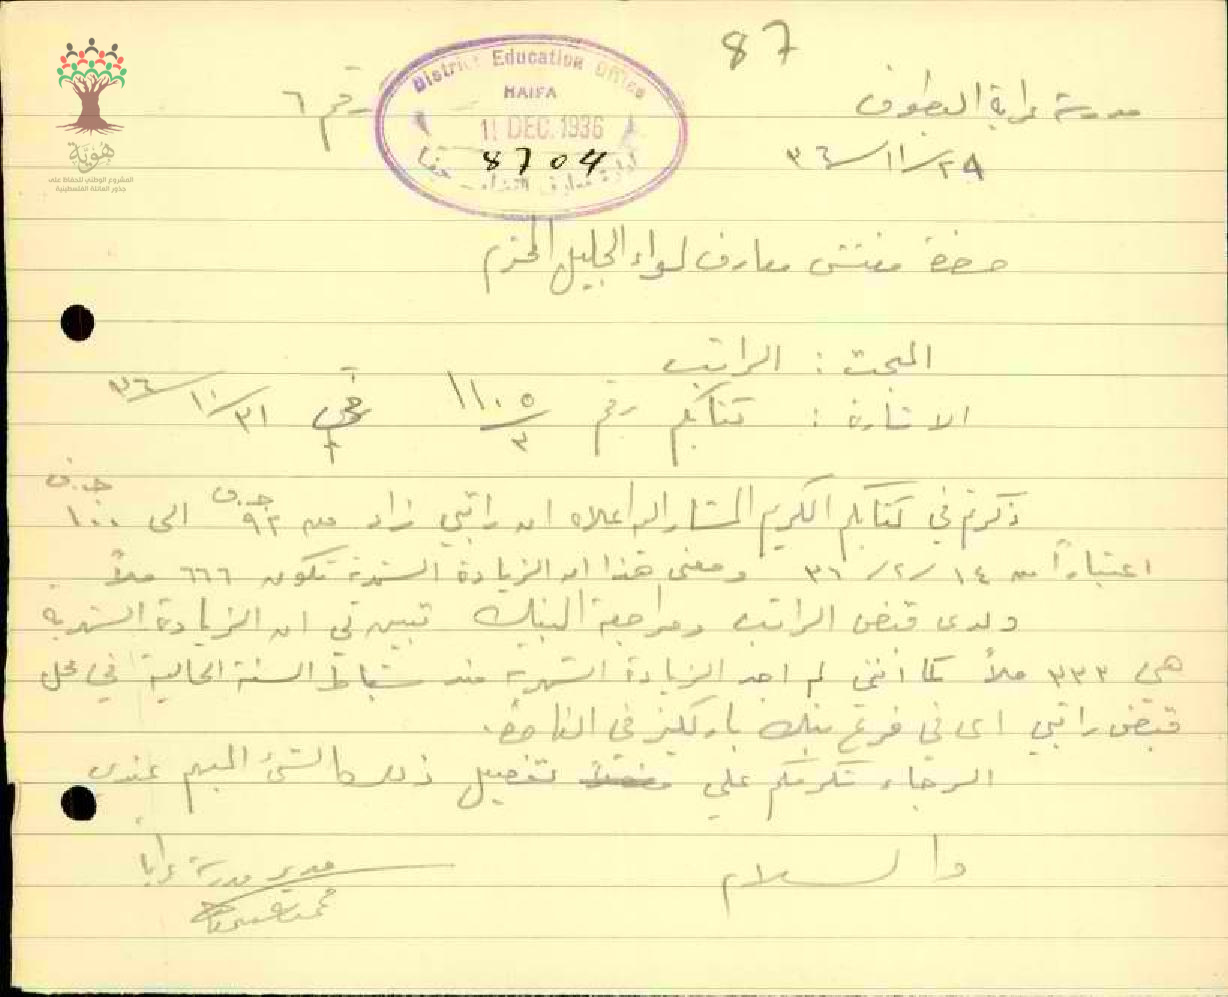 87
مدرسة عرابة البطوف
رقم ٦
District Education Office
HAIFA
11 DEC. 1936
8704
ادارة معارف القضاء حيفا
٢٩/١١/٣٦
هُوِيَّة
المشروع الوطني للحفاظ على
جذور العائلة الفلسطينية
حضرة مفتش معارف لواء الجليل المحترم
المبحث : الراتب
الاشارة : كتابكم رقم ١١٠٥/٣ في ٣١/١٠/٣٦
ذكرتم في كتابكم الكريم المشار اليه اعلاه ان راتبي زاد من ٩٢ ج.ف الى ١٠٠ ج.ف
اعتباراً من ١٤/٢/٣٦ ومعنى هذا ان الزيادة الشهرية تكون ٦٦٦ ملاً
ولدى قبض الراتب ومراجعة البنك تبين لي ان الزيادة الشهرية
هي ٣٣٣ ملاً كما أنني لم اجد الزيادة الشهرية منذ شباط السنة الحالية في محل
قبض راتبي اي في فرع بنك باركليز في الناصرة.
الرجاء تكرمكم علي تفصيل ذلك كالشئ المبهم عندي
والسلام
مدير مدرسة عرابا